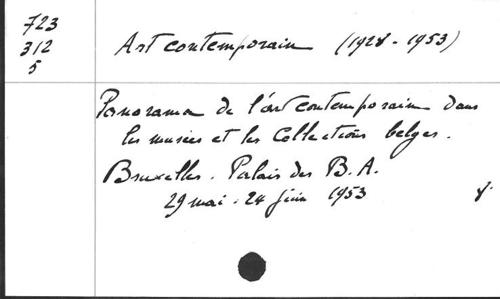 723
312
5
Art contemporain (1928-1953)
Panorama de l'art contemporain dans
les musées et les Collections belges.
Bruxelles. Palais des B.A.
29 mai - 24 juin 1953